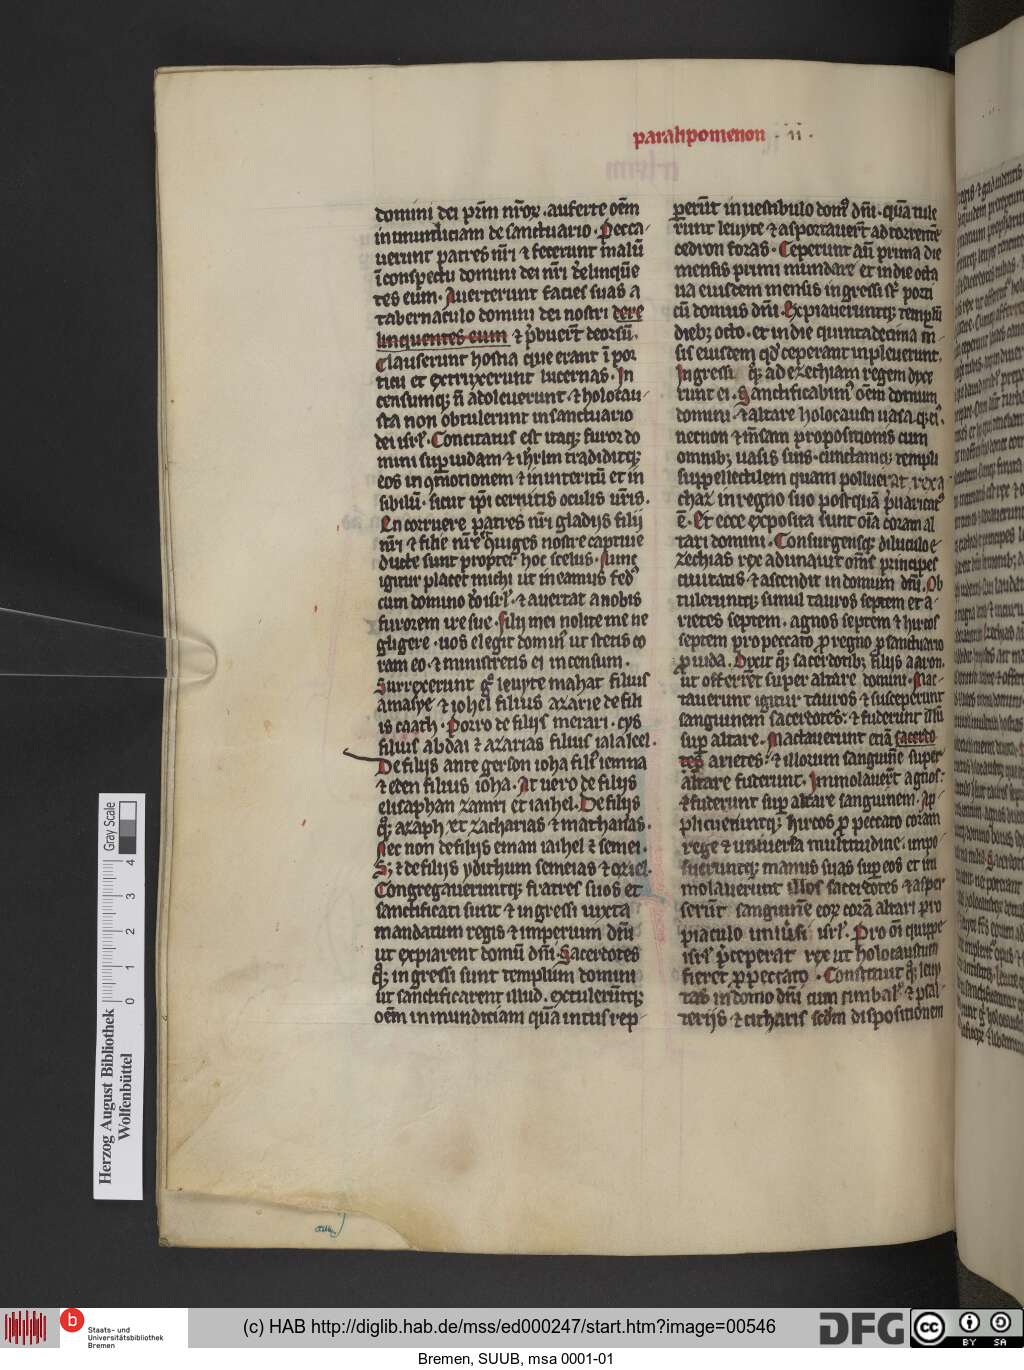 paralipomenon · ii ·
domini dei prm nror · auferte oem
inmundiciam de sanctuario · Pecca-
uerunt patres nri & fecerunt malu
i conspectu domini dei nri derelinque
tes eum · Auerterunt facies suas a
tabernaculo domini dei nostri dere
linquentes eum & pbuert deorsu ·
Clauserunt hostia que erant i por
ticu et extinxerunt lucernas · In
censumq; n adoleuerunt · & holocau-
sta non obtulerunt in sanctuario
dei isrl · Concitatus est itaq; furor do
mini sup iudam & ihrlm tradiditq;
eos in qmotionem & in interitu et in
sibilu · sicut ipi cernitis oculis uris ·
En corruere patres nri gladiis filii
nri & filie nre & qiuges nostre captiue
ducte sunt propter hoc scelus · Nunc
igitur placet michi ut ineamus fed
cum domino do isrl · & auertat a nobis
furorem ire sue · filii mei nolite me ne
gligere · uos elegit domin ut stetis co
ram eo · & ministretis ei incensum ·
Surrexerunt g leuyte mahat filius
amasye & iohel filius azarie de fili
is caath · Porro de filijs merari · cys
filius abdai & azarias filius ialaleel ·
De filijs ante gerson ioha fils iemna
& eden filius ioha · At uero de filijs
elisaphan zamri et iaihel · De filijs
q; azaph et zacharias & mathanas ·
Nec non de filijs eman iaihel & semei ·
S; & de filijs ydithum semeias & oziel ·
Congregaueruntq; fratres suos et
sanctificati sunt & ingressi iuxta
mandatum regis & imperium dni
ut expiarent domu dni · Sacerdotes
q; ingressi sunt templum domini
ut sanctificarent illud · extuleruntq;
oem inmundiciam qua intus rep-
perut in uestibulo dom dni · qua tule
runt leuyte & asportauert ad torrente
cedron foras · Ceperunt au prima die
mensis primi mundare et in die octa
ua eiusdem mensis ingressi st porti
cu domus dni · Expiaueruntq; templu
dieb; octo · et in die quintadecima m-
sis eiusdem qd ceperant inpleuerunt ·
Ingressi q; ad ezechiam regem dixe
runt ei · Sanctificabim oem domum
domini · & altare holocausti uasa q; ei ·
necnon & msam propositionis cum
omnib; uasis suis · cunctamq; templi
suppellectilem quam polluerat rex a
chaz in regno suo postqua puaricat
e · Et ecce exposita sunt oia coram al
tari domini · Consurgensq; diluculo e-
zechias rex adunauit oms principes
ciuitatis & ascendit in domum dni · Ob
tuleruntq; simul tauros septem et a-
rietes septem · agnos septem & hircos
septem pro peccato p regno p sanctuario
p iuda · Dixit q; sacerdotib; filijs aaron ·
ut offerret super altare domini · Mac-
tauerunt igitur tauros & susceperunt
sanguinem sacerdotes · & fuderunt illu
sup altare · Mactauerunt etia sacerdo
tes arietes · & illorum sanguine super
altare fuderunt · Immolauert agnos ·
& fuderunt sup altare sanguinem · Ap-
plicueruntq; hircos p peccato coram
rege & uniuersa multitudine · impo-
sueruntq; manus suas sup eos et im
molauerunt illos sacerdotes & asper
serut sanguine eor cora altari pro
piaculo uniusi isrl · Pro oi quippe
isrl pceperat rex ut holocaustum
fieret p peccato · Constituit q; leui
tas in domo dni cum cimbal & psal-
terijs & citharis scdm dispositionem
Gray Scale
4 3 2 1 0
Herzog August Bibliothek
Wolfenbüttel
b
Staats- und
Universitätsbibliothek
Bremen
(c) HAB http://diglib.hab.de/mss/ed000247/start.htm?image=00546
DFG
cc BY SA
Bremen, SUUB, msa 0001-01